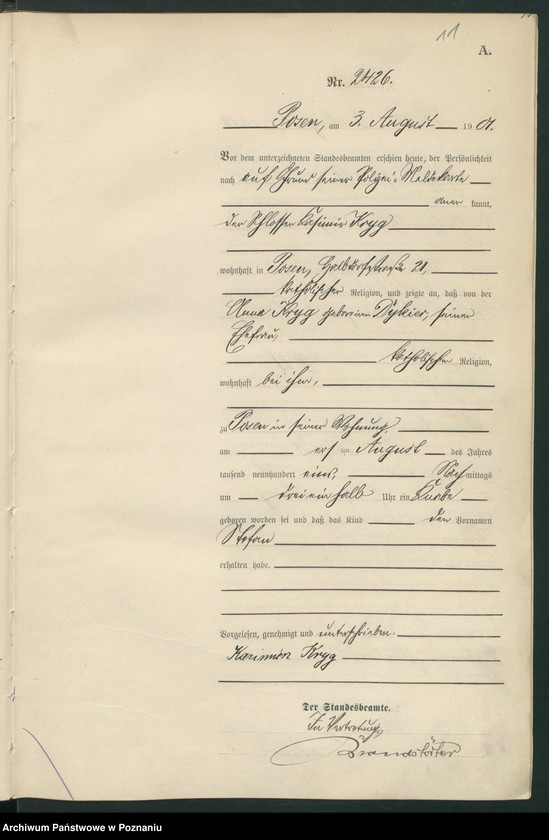 11
A.
Nr. 2426.
Posen, am 3. August 1901.
Vor dem unterzeichneten Standesbeamten erschien heute, der Persönlichkeit
nach auf Grund seiner Polizei-Meldekarte
aner kannt,
der Schlosser Casimir Kryg
wohnhaft in Posen, Halbdorfstraße 21,
katholischer Religion, und zeigte an, daß von der
Anna Kryg geborenen Dykier, seiner
Ehefrau,
katholischer Religion,
wohnhaft bei ihm,
zu Posen in seiner Wohnung
am ersten August des Jahres
tausend neunhundert eins, Nachmittags
um drei ein halb Uhr ein Knabe
geboren worden sei und daß das Kind den Vornamen
Stefan
erhalten habe.
Vorgelesen, genehmigt und unterschrieben.
Kazimir Kryg
Der Standesbeamte.
In Vertretung
Brandstäter
Archiwum Państwowe w Poznaniu